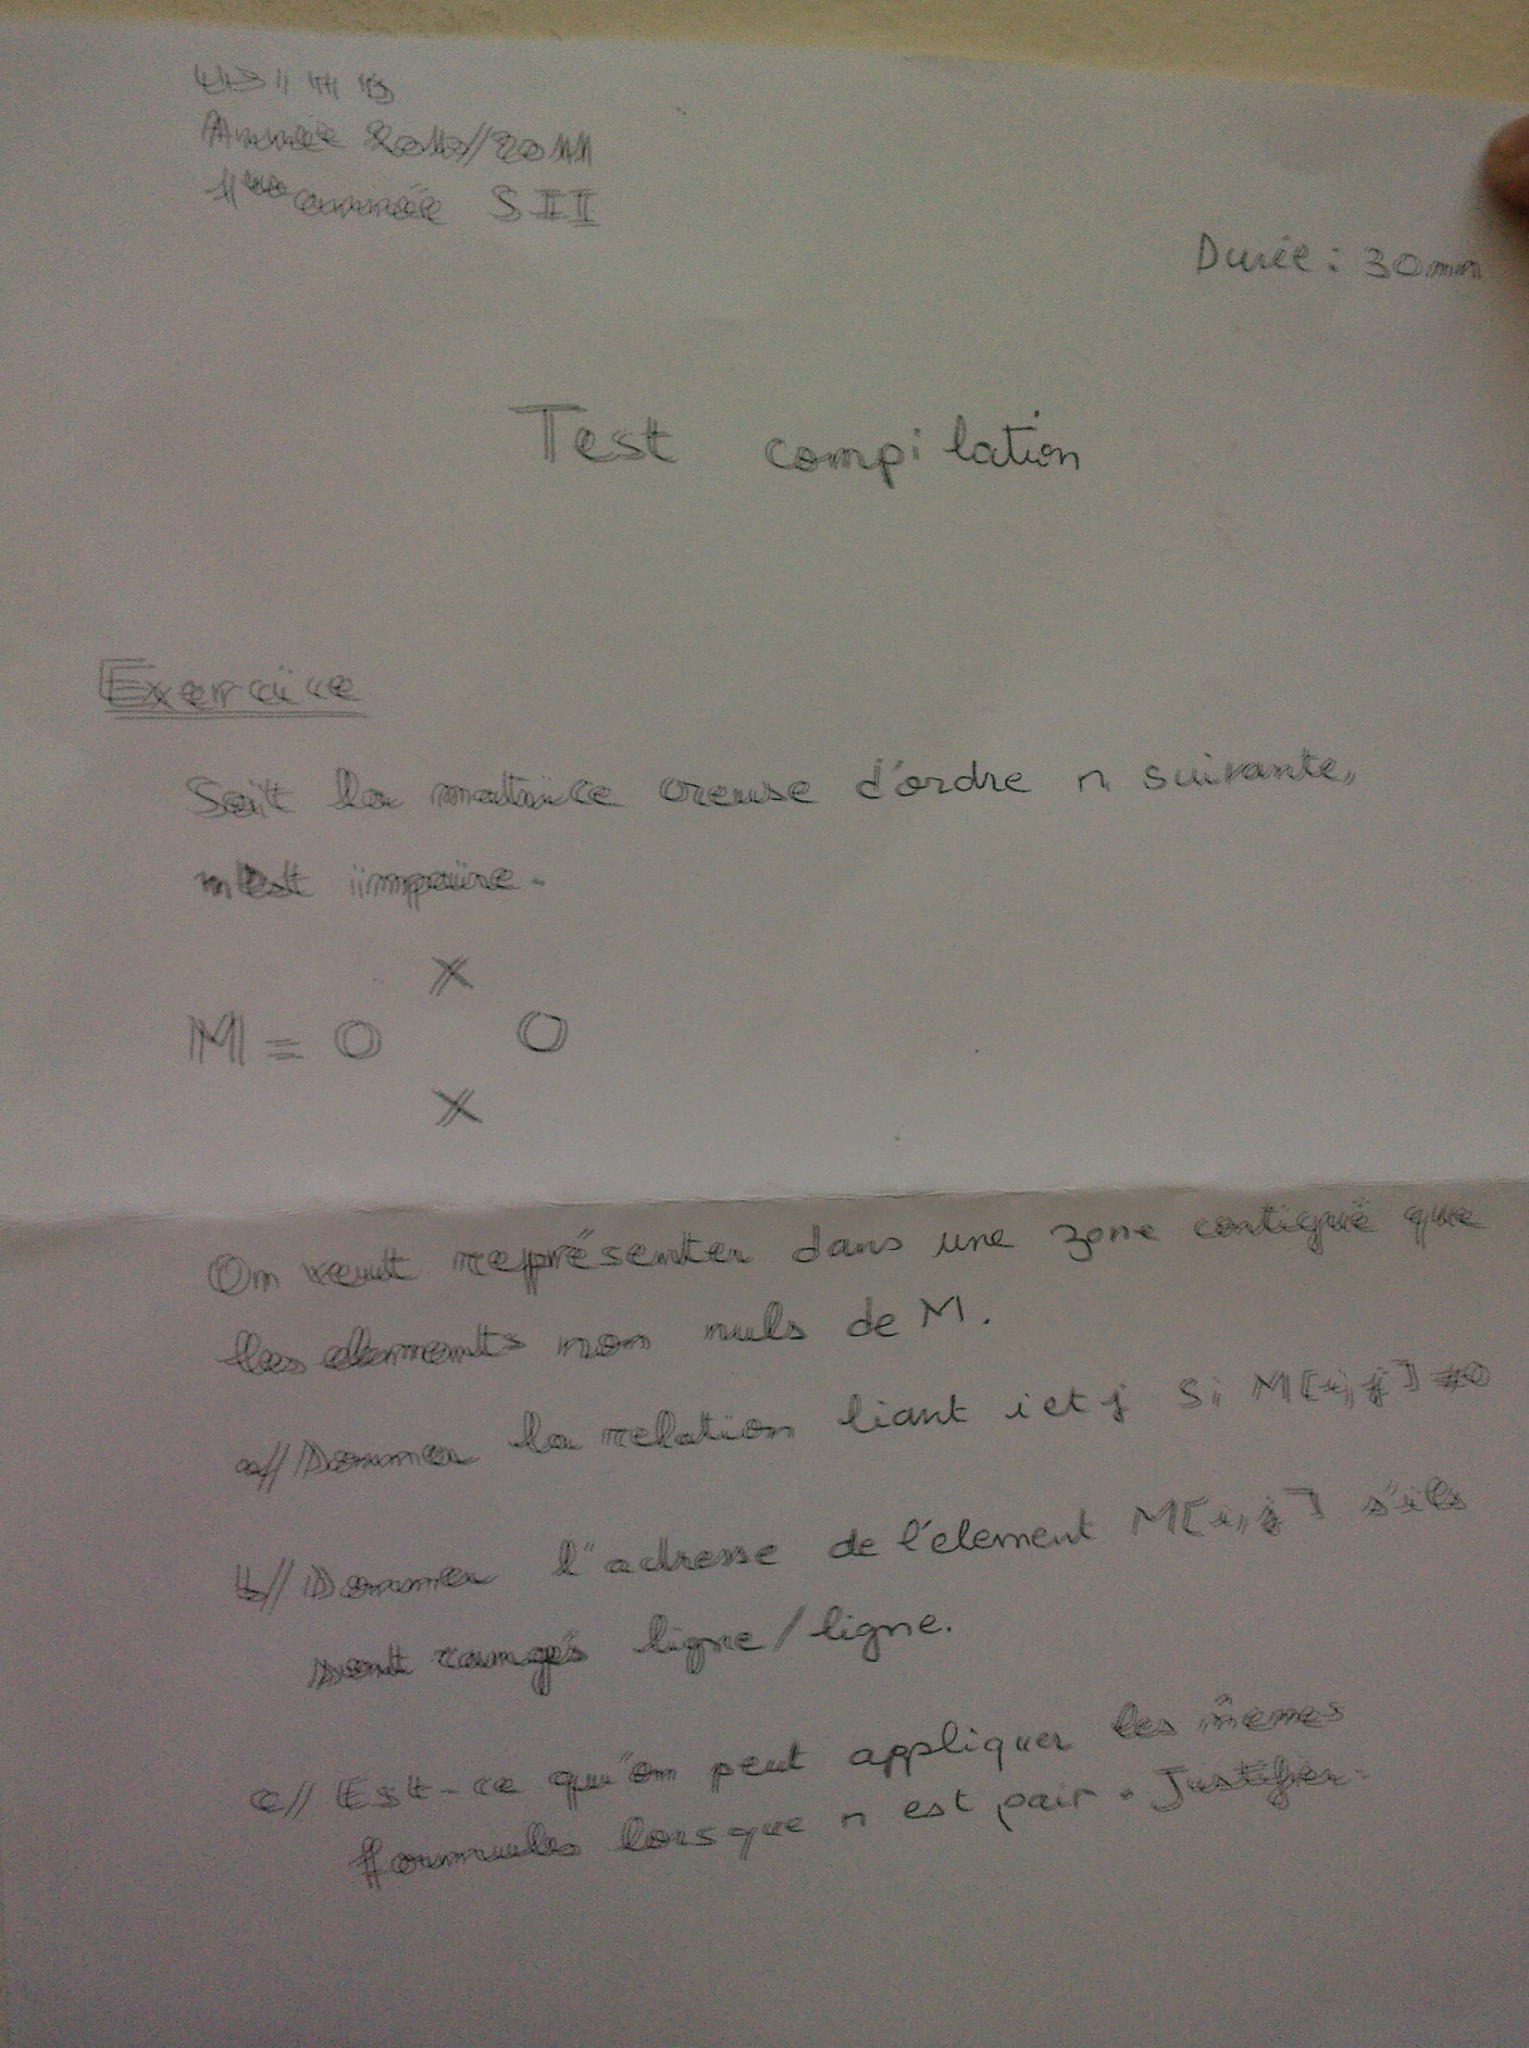 Année 2010/2011
1ère année SII
Durée : 30min
Test compilation
Exercice
Soit la matrice creuse d'ordre n suivante,
n est impaire.
X
M = O O
X
On veut représenter dans une zone contiguë que
les elements non nuls de M.
a// Donner la relation liant i et j Si M[i,j] ≠0
b// Donner l'adresse de l'élement M[i,j] s'ils
sont rangés ligne/ligne.
c// Est-ce qu'on peut appliquer les mêmes
formules lorsque n est pair. Justifier.